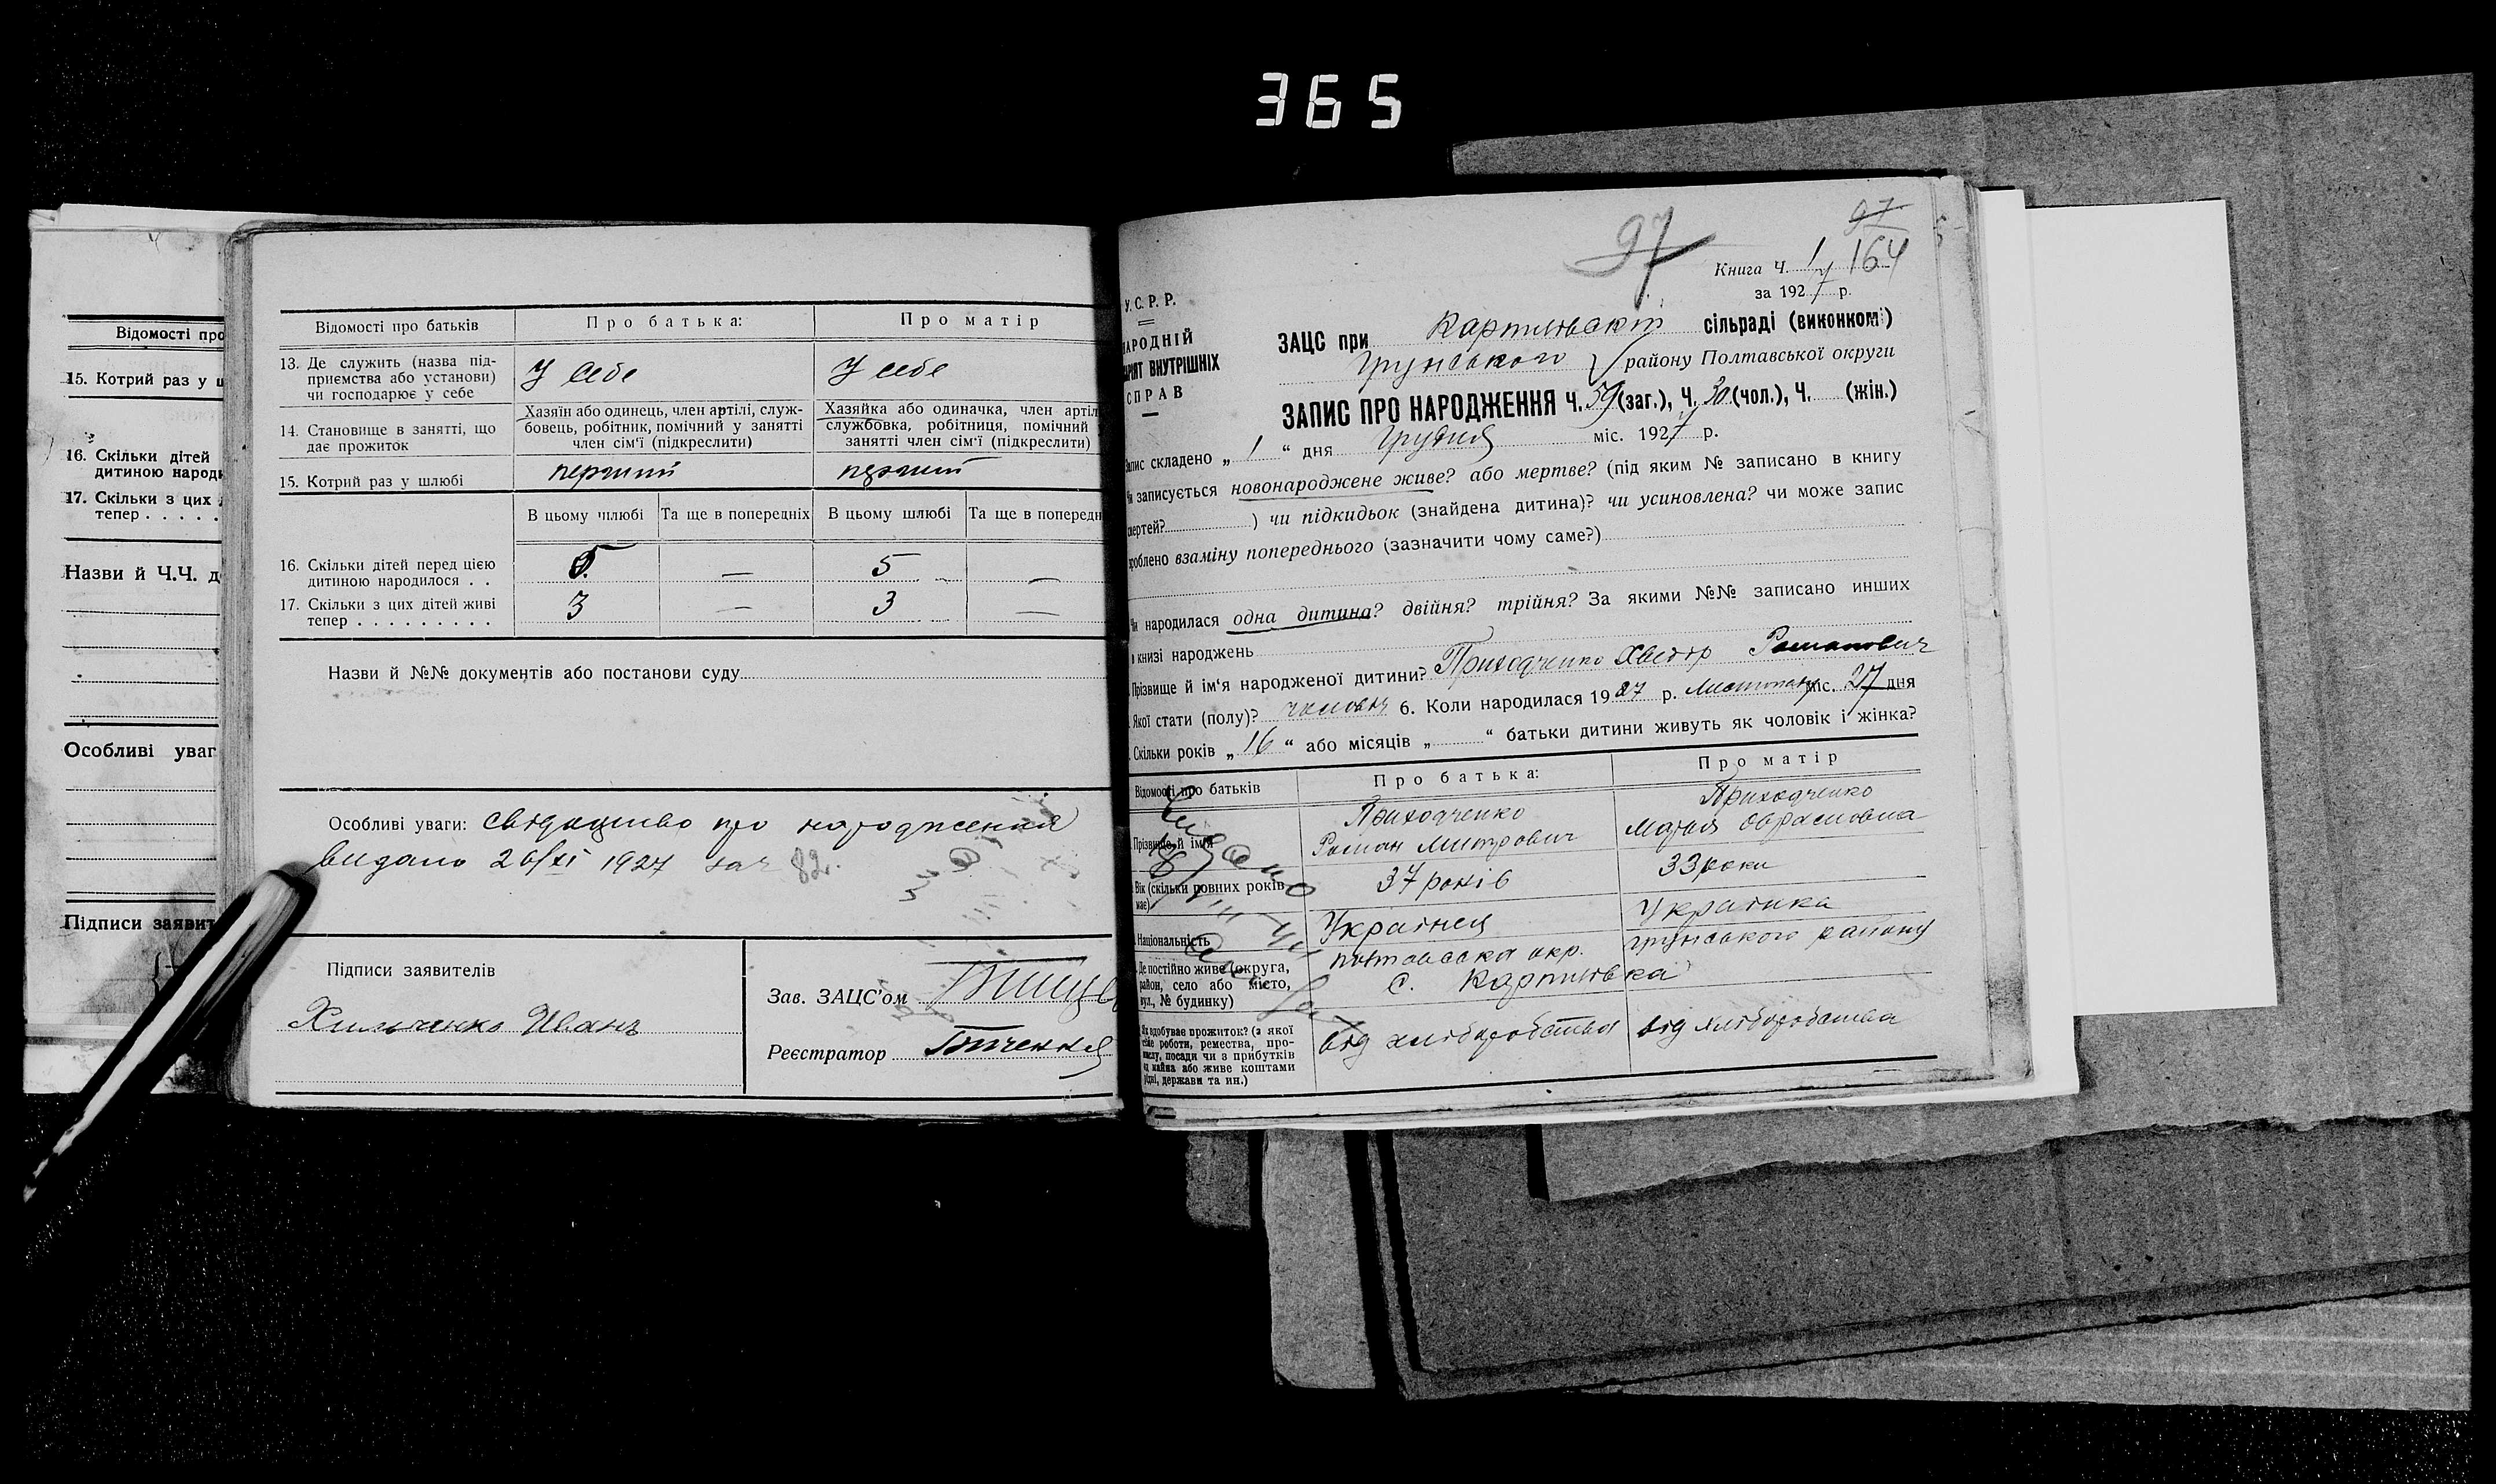 365
Відомості про
15. Котрий раз у ш
16. Скільки дітей
дитиною народ
17. Скільки з цих
тепер . . . . .
Назви й Ч.Ч. д
Особливі уваг
Підписи заявит
Відомості про батьків
Про батька:
Про матір
13. Де служить (назва під-
приємства або установи)
чи господарює у себе
У себе
У себе
14. Становище в занятті, що
дає прожиток
Хазяїн або одинець, член артілі, служ-
бовець, робітник, помічний у занятті
член сім'ї (підкреслити)
Хазяйка або одиначка, член артіл
службовка, робітниця, помічний
занятті член сім'ї (підкреслити)
15. Котрий раз у шлюбі
перший
перший
В цьому шлюбі
Та ще в попередніх
В цьому шлюбі
Та ще в попередн
16. Скільки дітей перед цією
дитиною народилося . .
5 — 5 —
17. Скільки з цих дітей живі
тепер . . . . . . . . .
3 — 3 —
Назви й №№ документів або постанови суду
Особливі уваги: свідоцтво про народження
видано 26/XI 1927 за ч 82.
Підписи заявителів
Хильченко Иванъ
Зав. ЗАЦС'ом
Реєстратор
97
97
164
Книга Ч. 1
за 1927 р.
У. С. Р. Р.
НАРОДНІЙ
АРІЯТ ВНУТРІШНІХ
СПРАВ
ЗАЦС при сільраді (виконкомі)
Грунського району Полтавської округи
ЗАПИС ПРО НАРОДЖЕННЯ Ч. 59 (заг.), Ч. 30 (чол.), Ч. (жін.)
Запис складено „ 1 “ дня грудня міс. 1927 р.
Чи записується новонароджене живе? або мертве? (під яким № записано в книгу
смертей? ) чи підкидьок (знайдена дитина)? чи усиновлена? чи може запис
зроблено взаміну попереднього (зазначити чому саме?)
Чи народилася одна дитина? двійня? трійня? За якими №№ записано инших
в книзі народжень
Прізвище й ім'я народженої дитини? Приходченко Хведор Романович
Якої стати (полу)? чоловіч 6. Коли народилася 1927 р. Листопаду міс. 27 дня
Скільки років „ 16 “ або місяців „ “ батьки дитини живуть як чоловік і жінка?
Відомості про батьків
Про батька:
Про матір
Прізвище й ім'я
Приходченко
Роман Митрович
Приходченко
Вік (скільки ровних років
має)
37 років
33 роки
Національність
Українец
Українка
Де постійно живе (округа,
район, село або місто,
вул., № будинку)
Полтавська окр.
Грунського району
с.
Як здобуває прожиток? (з якої
роботи, ремества, про-
мислу, посади чи з прибутків
від майна або живе коштами
рідні, держави та ин.)
від хліборобства
від хліборобства
Видано